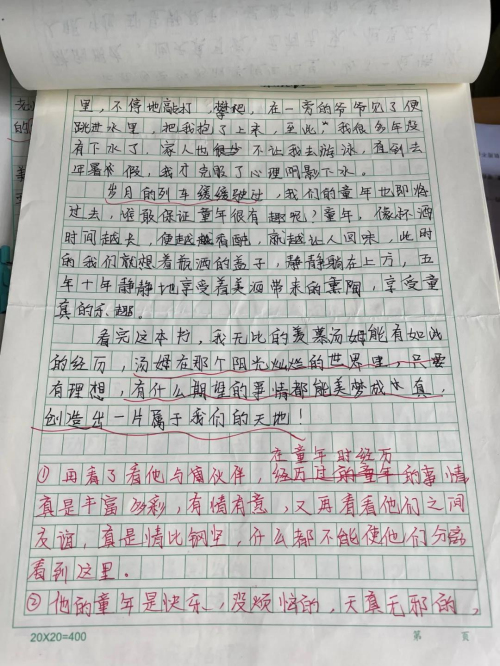 里，不停地敲打，攀爬，在一旁的爷爷见了便
跳进水里，把我抱了上来，至此"我很多年没
有下水了，家人也 不让我去游泳，直到去
年暑假，我才克服了心理阴影下水。
岁月的列车缓缓驶过，我们的童年也即将
过去，谁敢保证童年很有趣呢？童年，像杯酒
时间越长，便越 有醇，就越让人回味，此时
的我们就想着 洒的盖子，静静躺在上方，五
年十年静静地享受着美酒带来的熏陶，享受童
真的乐趣。
看完这本书，我无比的羡慕汤姆能有如此
的经历，汤姆在那个阳光灿烂的世界里，只要
有理想，有什么期望的事情都能美梦成 真，
创造出一片属于我们的天地！
在童年时经历
①再看了看他与 伙伴，经历过的童年的事情
真是丰富多彩，有情有意，又再看看他们之间
友谊，真是情比钢坚，什么都不能使他们分离
看到这里。
②他的童年是快乐、没烦恼的，天真无邪的，
20X20=400
第 页